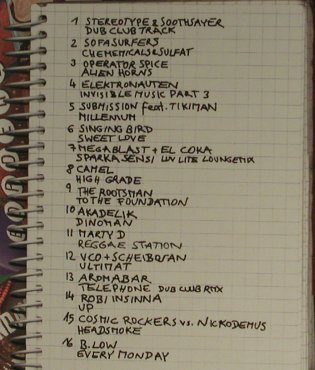 1 STEREOTYPE & SOOTHSAYER
DUB CLUB TRACK
2 SOFA SURFERS
CHEMEMICALS & SULFAT
3 OPERATOR SPICE
ALIEN HORNS
4 ELEKTRONAUTEN
INVISIBLE MUSIC PART 3
5 SUBMISSION feat. TIKIMAN
MILLENIUM
6 SINGING BIRD
SWEET LOVE
7 MEGABLAST + EL COKA
SPARKA SENSI UN LITE LOUNGEMIX
8 CAMEL
HIGH GRADE
9 THE ROOTSMAN
TO THE FOUNDATION
10 AKADELIK
DINOMAN
11 MARTY D
REGGAE STATION
12 VCO + SCHEIBOSAN
ULTIMAT
13 AROMABAR
TELEPHONE DUB CLUB RMX
14 ROBI INSINNA
UP
15 COSMIC ROCKERS vs. NICKODEMUS
HEADSMOKE
16 B. LOW
EVERY MONDAY